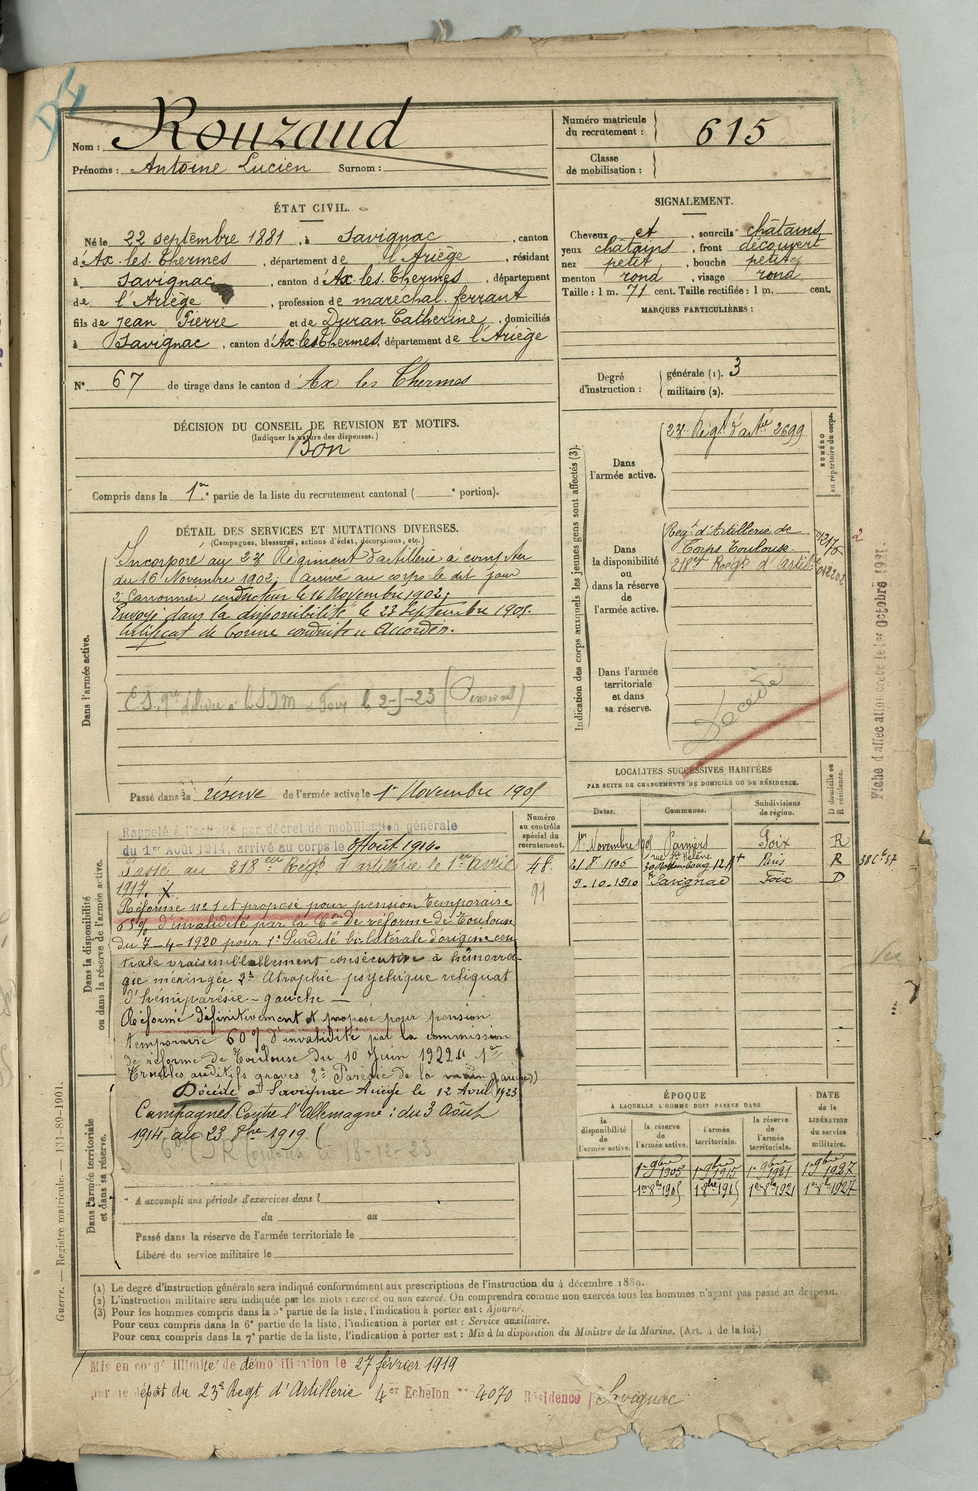 Nom : Rouzaud
Prénoms : Antoine Lucien Surnom :
Numéro matricule du recrutement : 615
Classe de mobilisation :
ÉTAT CIVIL.
Né le 22 septembre 1881, à Savignac, canton
d'Ax-les-Thermes, département de l'Ariège, résidant
à Savignac, canton d'Ax les Thermes, département
de l'Ariège, profession de maréchal ferrant
fils de Jean Pierre et de Duran Catherine, domiciliés
à Savignac, canton d'Ax-les-Thermes, département de l'Ariège
N° 67 de tirage dans le canton d'Ax les Thermes
SIGNALEMENT.
Cheveux et, sourcils châtains
yeux châtains, front découvert
nez petit, bouche petite
menton rond, visage rond
Taille : 1 m. 71 cent. Taille rectifiée : 1 m. cent.
MARQUES PARTICULIÈRES :
Degré d'instruction : générale (1). 3
militaire (2).
DÉCISION DU CONSEIL DE REVISION ET MOTIFS.
(Indiquer la nature des dispenses.)
Bon
Compris dans la 1re partie de la liste du recrutement cantonal ( e portion).
DÉTAIL DES SERVICES ET MUTATIONS DIVERSES.
(Campagnes, blessures, actions d'éclat, décorations, etc.)
Dans l'armée active.
Incorporé au 23e Régiment d'artillerie à compter
du 16 Novembre 1902, arrivé au corps le dit jour
2e Canonnier conducteur le 16 Novembre 1902.
Envoyé dans la disponibilité le 23 septembre 1905.
Certificat de bonne conduite "Accordé".
le 2-5-23 (Pensions)
Passé dans la réserve de l'armée active le 1er Novembre 1905
Indication des corps auxquels les jeunes gens sont affectés (3).
Dans l'armée active.
23e Régt d'artie 2699
NUMÉRO au répertoire du corps.
Dans la disponibilité ou dans la réserve de l'armée active.
Régt d'Artillerie de
Corps Toulouse
218e Régt d'Artill
Dans l'armée territoriale et dans sa réserve.
Décédé
Fiche d'affectation créée le 1er octobre 1921.
LOCALITÉS SUCCESSIVES HABITÉES
PAR SUITE DE CHANGEMENTS DE DOMICILE OU DE RÉSIDENCE.
Dates. Communes. Subdivisions de région. D domicile ou R résidence.
1er Novembre 1905 Pamiers Foix R
21 8 1906 Paris R
9-10-1910 Savignac Foix D
Dans la disponibilité ou dans la réserve de l'armée active.
Numéro au contrôle spécial du recrutement.
48
91
Rappelé à l'activité par décret de mobilisation générale
du 1er Août 1914, arrivé au corps le 3 Août 1914.
Passé au 218ème Régt d'artillerie le 1er avril
1917. X
Réformé n° 1 et proposé pour pension temporaire
65% d'invalidité par la Con de réforme de Toulouse
du 7-4-1920 pour 1° Surdité bilatérale d'origine cen
trale vraisemblablement consécutive à hémorra
gie méningée 2° Atrophie psychique reliquat
d'hémiparésie gauche —
Réformé définitivement et proposé pour pension
temporaire 60% d'invalidité par la commission
de réforme de Toulouse du 10 Juin 1922 1°
Troubles auditifs graves 2° Parésie de la main gauche
Décédé à Savignac Ariège le 12 Avril 1923
Dans l'armée territoriale et dans sa réserve.
Campagnes Contre l'Allemagne : du 3 Août
1914 au 23 8bre 1919.
18-12-23
A accompli une période d'exercices dans l
du au
Passé dans la réserve de l'armée territoriale le
Libéré du service militaire le
ÉPOQUE
À LAQUELLE L'HOMME DOIT PASSER DANS
la disponibilité de l'armée active. la réserve de l'armée active. l'armée territoriale. la réserve de l'armée territoriale. DATE de la LIBÉRATION du service militaire.
1er 9bre 1905 1er 9bre 1915 1er 9bre 1921 1er 9bre 1927
1er 8bre 1905 1er 8bre 1915 1er 8bre 1921 1er 8bre 1927
(1) Le degré d'instruction générale sera indiqué conformément aux prescriptions de l'instruction du 4 décembre 1889.
(2) L'instruction militaire sera indiquée par les mots : exercé ou non exercé. On comprendra comme non exercés tous les hommes n'ayant pas passé au drapeau.
(3) Pour les hommes compris dans la 5e partie de la liste, l'indication à porter est : Ajourné.
Pour ceux compris dans la 6e partie de la liste, l'indication à porter est : Service auxiliaire.
Pour ceux compris dans la 7e partie de la liste, l'indication à porter est : Mis à la disposition du Ministre de la Marine. (Art. 4 de la loi.)
Guerre. — Registre matricule. — 131-89-1901.
Mis en congé illimité de démobilisation le 27 février 1919
par le dépôt du 23e Regt d'Artillerie 4er Echelon n° 4070 Résidence Savignac